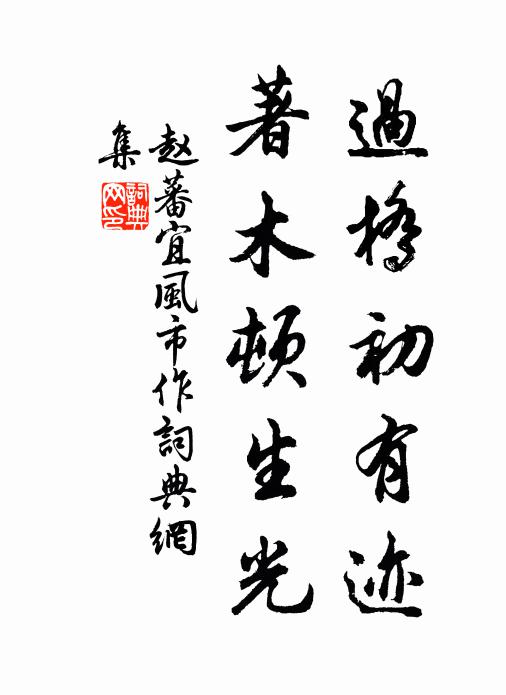 過橋初有迹
著木頓生光
赵蕃宜風市作詞典網
集
詞典
网印